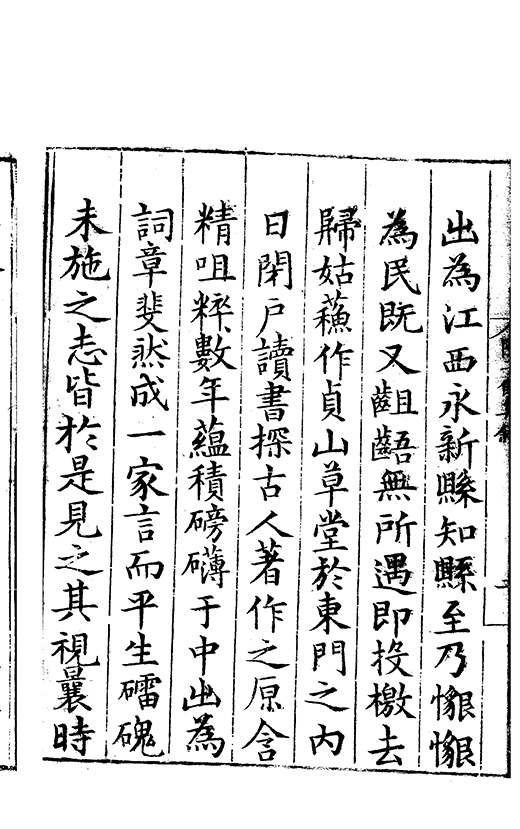 出為江西永新縣知縣至乃懇懇
為民既又齟齬無所遇即投檄去
歸姑蘓作貞山草堂於東門之内
日閉戶讀書探古人著作之原含
精咀粹數年蘊積磅礴于中出為
詞章斐然成一家言而平生礌磈
未施之志皆於是見之其視曩時